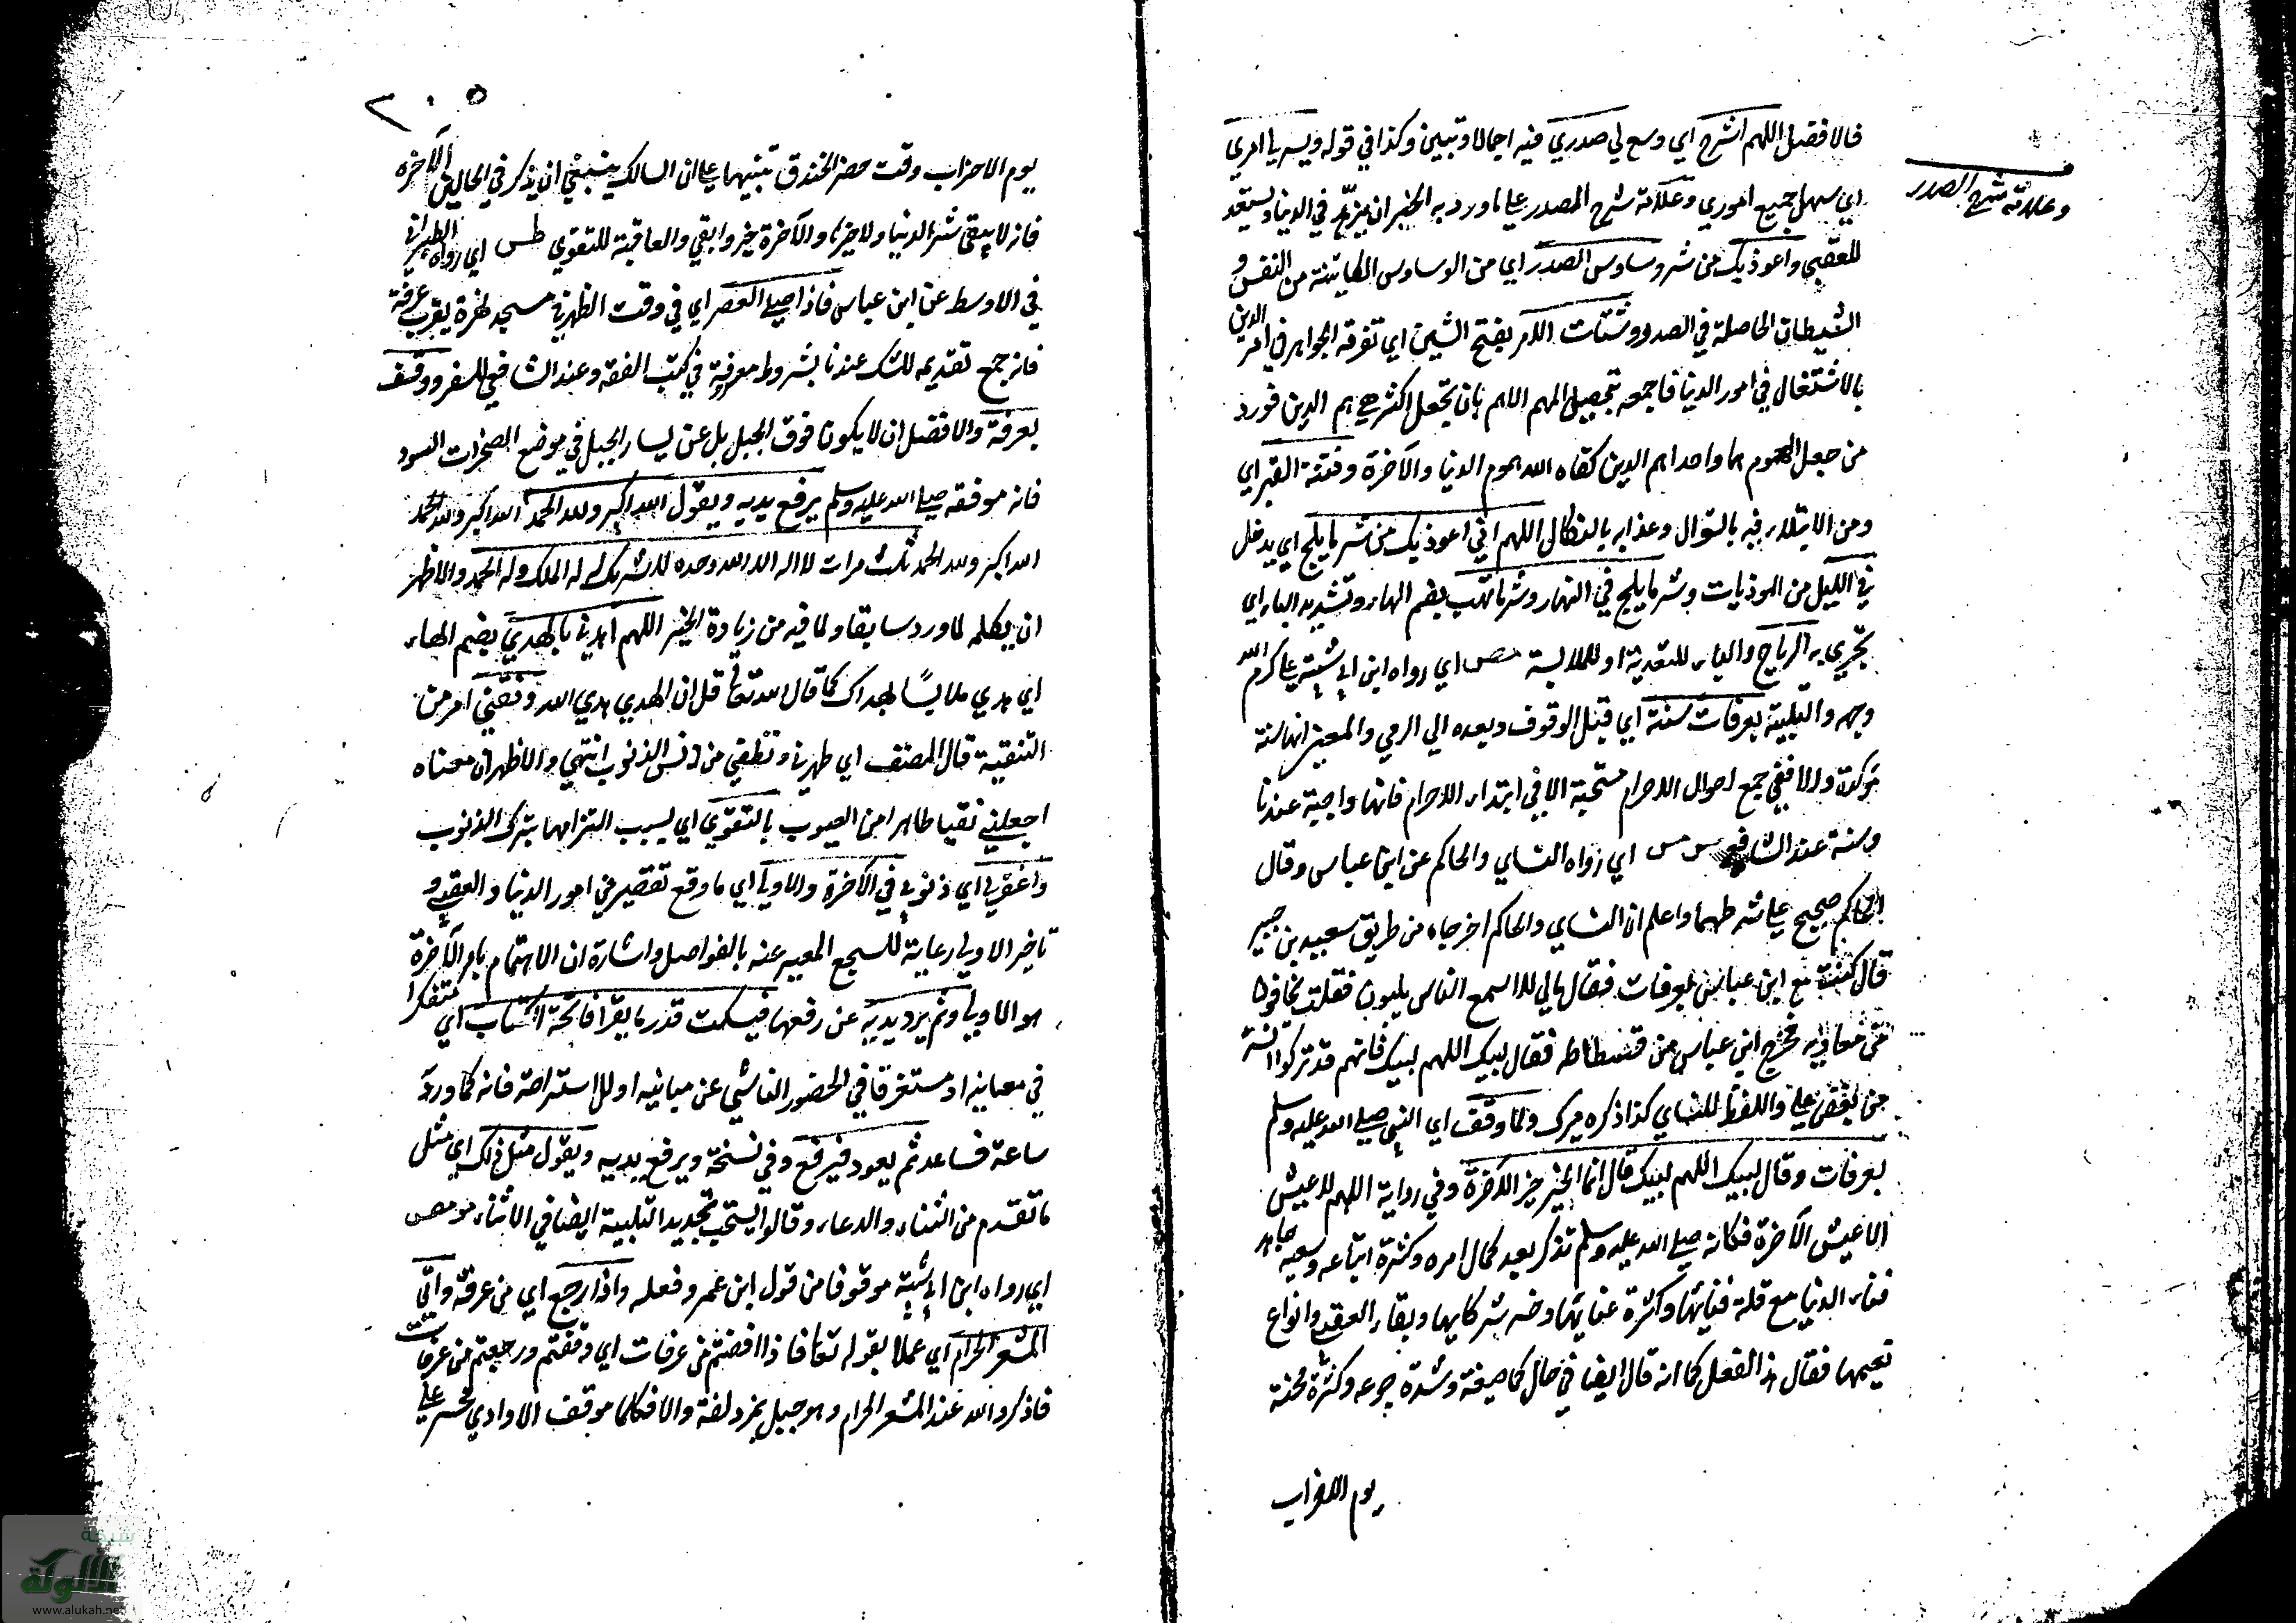 فالافضل اللهم اشرح اي وسع لي صدري فيه اجمالا وتبيين وكذا في قوله ويسر لي امري
وعلامة شرح الصدر
اي سهل جميع اموري وعلامة شرح المصدر على ما ورد به الخبر ان يزهد في الدنيا ويستعد
للعقبى واعوذ بك من شر وساوس الصدر اي من الوساوس الكائنة من النفس و
الشيطان الحاصلة في الصدر وشتات الامر بفتح الشين اي تفرقه الخواطر في امر الدين
بالاشتغال في امور الدنيا فاجمعه بتحصيل المهم الاهم بان تجعل اكثر همي هم الدين فورد
من جعل الهموم هما واحدا هم الدين كفاه الله هموم الدنيا والآخرة وفتنة القبر اي
ومن الابتلاء فيه بالسؤال وعذابه بالنكال اللهم اني اعوذ بك من شر ما يلج اي يدخل
في الليل من الموذيات وشر ما يلج في النهار وشر ما تهب بضم الهاء وتشديد الباء اي
تجري به الرياح والباء للتعدية او للملابسة مص اي رواه ابن ابي شيبة علي كرم الله
وجهه والتلبية بعرفات سنة اي قبل الوقوف وبعده الي الرمي والمعني انها سنة
مؤكدة والا ففي جمع احوال الاحرام مستحبة الا في ابتداء الاحرام فانها واجبة عندنا
وسنة عند الشافعي س مس اي رواه النساي والحاكم عن ابن عباس وقال
الحاكم صحيح على شرطهما واعلم ان النساي والحاكم اخرجاه من طريق سعيد بن جبير
قال كنت مع ابن عباس بعرفات فقال مالي لا اسمع الناس يلبون فقلت يخافون
من معاوية فخرج ابن عباس من فسطاطه فقال لبيك اللهم لبيك فانهم قد تركوا السنة
من بغض علي واللفظ للنساي كذا ذكره ميرك ولما وقف اي النبي صلى الله عليه وسلم
بعرفات وقال لبيك اللهم لبيك قال انما الخير خير الآخرة وفي رواية اللهم لا عيش
الا عيش الآخرة فكانه صلى الله عليه وسلم تذكر بعد كمال امره وكثرة اتباعه وسعة جاهه
فناء الدنيا مع قلة غنائها وكثرة عنائها وخسة شركايها وبقاء العقبى وانواع
نعيمها فقال هذا الفعل كما انه قال ايضا في حال كما صيفة وشدة جوعه وكثرة محنة
يوم الاحزاب
٢٠٥
يوم الاحزاب وقت حفر الخندق تنبيها على ان السالك ينبغي ان يذكر في الحالين الآخرة
فانه لا يبقى شر الدنيا ولا خيرها والآخرة خير وابقي والعاقبة للتقوي طس اي رواه الطبراني
في الاوسط عن ابن عباس فاذا صلى العصر اي في وقت الظهر في مسجد نمرة بقرب عرفة
فانه جمع تقديم للنسك عندنا بشروط معروفة في كتب الفقه وعند الشافعي للسفر ووقف
بعرفة والافضل ان لا يكون فوق الجبل بل عن يسار الجبل في موضع الصخرات السود
فانه موقفه صلى الله عليه وسلم يرفع يديه ويقول الله اكبر ولله الحمد الله اكبر ولله الحمد
الله اكبر ولله الحمد ثلث مرات لا اله الا الله وحده لا شريك له له الملك وله الحمد والاظهر
ان يكمله لما ورد سابقا ولما فيه من زيادة الخير اللهم اهدني بالهدي بضم الهاء
اي هدي ملابسا لهداك كما قال الله تعالى قل ان الهدي هدي الله ونقني امر من
التنقية قال المصنف اي طهرني ونظفني من دنس الذنوب انتهي والاظهر ان معناه
اجعلني نقيا طاهرا من العيوب بالتقوي اي بسبب التزامها بترك الذنوب
واغفر لي اي ذنوبي في الآخرة والاولي اي ما وقع تقصير في امور الدنيا والعقبى و
تاخير الاولي رعاية للسجع المعبر عنه بالفواصل واشارة ان الاهتمام بامر الآخرة
هو الاولي وثم يرد يديه عن رفعها فيسكت قدر ما يقرأ فاتحة الكتاب اي متفكرا
في معانيه او مستغرقا في الحضور الناشي عن مبانيه او للاستراحة فانه كما ورد
ساعة فساعة ثم يعود فيرفع وفي نسخة ويرفع يديه ويقول مثل ذلك اي مثل
ما تقدم من الثناء والدعاء وقالوا يستحب تجديد التلبية ايضا في الاثناء مو مص
اي رواه ابن ابي شيبة موقوفا من قول ابن عمر وفعله واذا رجع اي من عرفة واتى
المشعر الحرام اي عملا بقوله تعالى فاذا افضتم من عرفات اي وقفتم ورجعتم من عرفات
فاذكروا الله عند المشعر الحرام وهو جبل بمزدلفة والا فكلها موقف الا وادي محسر على